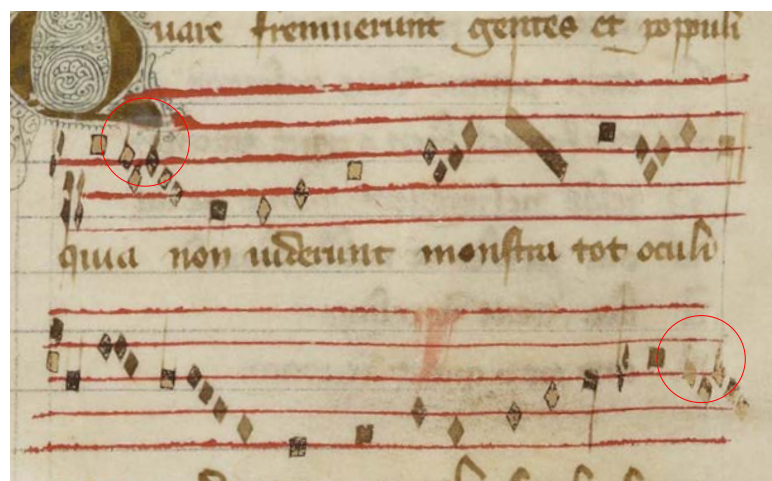 Quare fremuerunt gentes et populi
quia non uiderunt monstra tot oculi